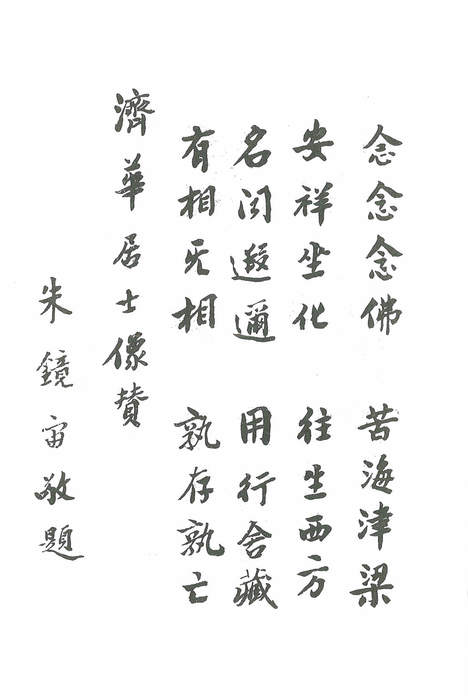 念念念佛 苦海津梁
安祥坐化 往生西方
名闻遐邇 用行舍藏
有相旡相 孰存孰亡
濟華居士像贊
朱鏡宙敬題